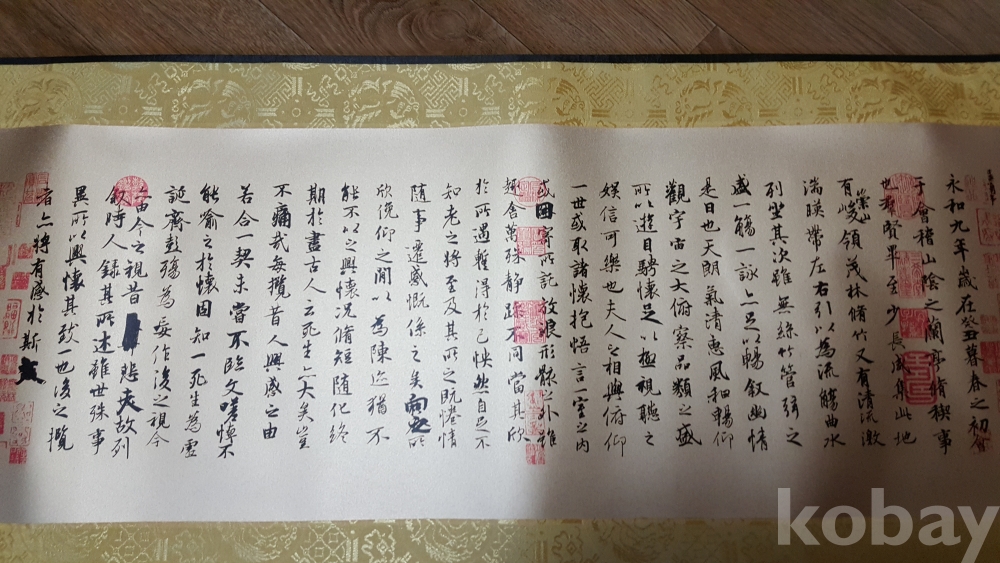 永和九年歲在癸丑暮春之初會
于會稽山陰之蘭亭脩稧事
也羣賢畢至少長咸集此地
有崇山峻領茂林脩竹又有清流激
湍暎帶左右引以為流觴曲水
列坐其次雖無絲竹管弦之
盛一觴一詠亦足以暢敘幽情
是日也天朗氣清惠風和暢仰
觀宇宙之大俯察品類之盛
所以遊目騁懷足以極視聽之
娛信可樂也夫人之相與俯仰
一世或取諸懷抱悟言一室之內
或因寄所託放浪形骸之外雖
趣舍萬殊靜躁不同當其欣
於所遇暫得於己怏然自足不
知老之將至及其所之既惓情
隨事遷感慨係之矣向之所
欣俛仰之間以為陳迹猶不
能不以之興懷況脩短隨化終
期於盡古人云死生亦大矣豈
不痛哉每攬昔人興感之由
若合一契未嘗不臨文嗟悼不
能喻之於懷固知一死生為虛
誕齊彭殤為妄作後之視今
亦由今之視昔悲夫故列
敘時人錄其所述雖世殊事
異所以興懷其致一也後之攬
者亦將有感於斯文
kobay